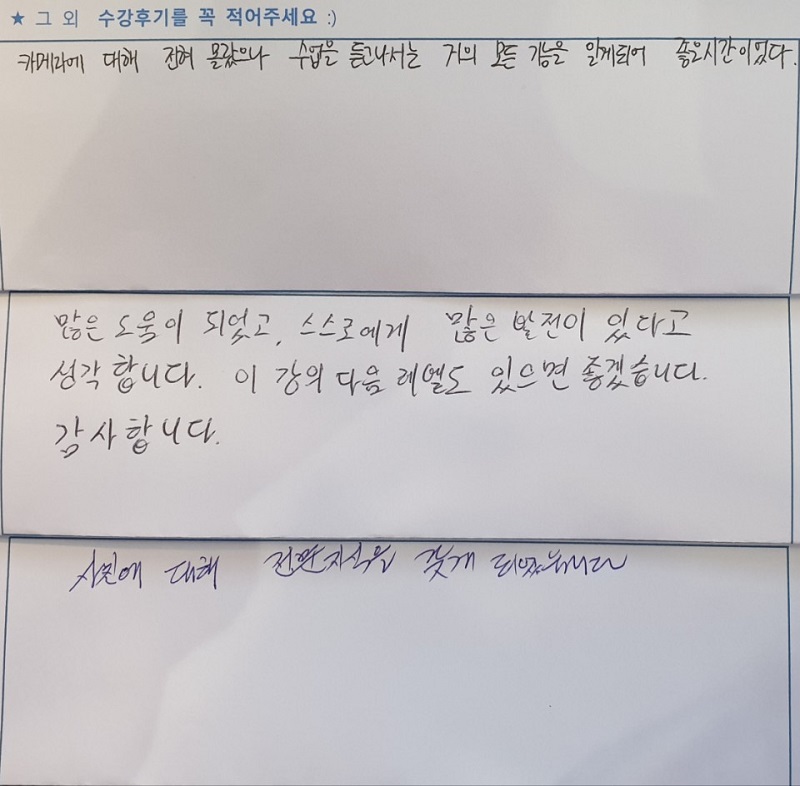 ★ 그 외 수강후기를 꼭 적어주세요 :)
카메라에 대해 전혀 몰랐으나 수업을 듣고나서는 거의 모든 기능을 알게되어 좋은시간이었다.
많은 도움이 되었고, 스스로에게 많은 발전이 있다고
생각합니다. 이 강의 다음 레벨도 있으면 좋겠습니다.
감사합니다.
사진에 대해 갖게 되었습니다